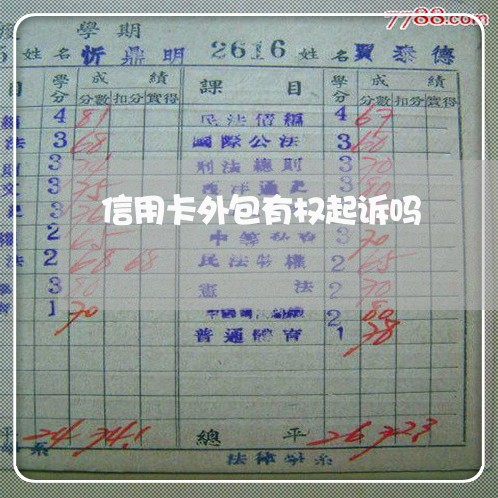 7788.com
學期
姓名 忻鼎明 2616 姓名 賈泰德
目 學分 成績 課目 學分 成績
分數 扣分 實得 分數 扣分 實得
4 81 民法債編 4 67
法 3 68 國際公法 3 60
3 刑法總則 3 70
3 75 西洋通史 3 80
信用卡外包有权起诉吗
2 65 3 70
法 2 68 68 民法物權 2 65
3 80 憲法 2 70
1 70 2 80
普通體育 1 78
平 24 74.1 總平 26 72.3
系 法律學系